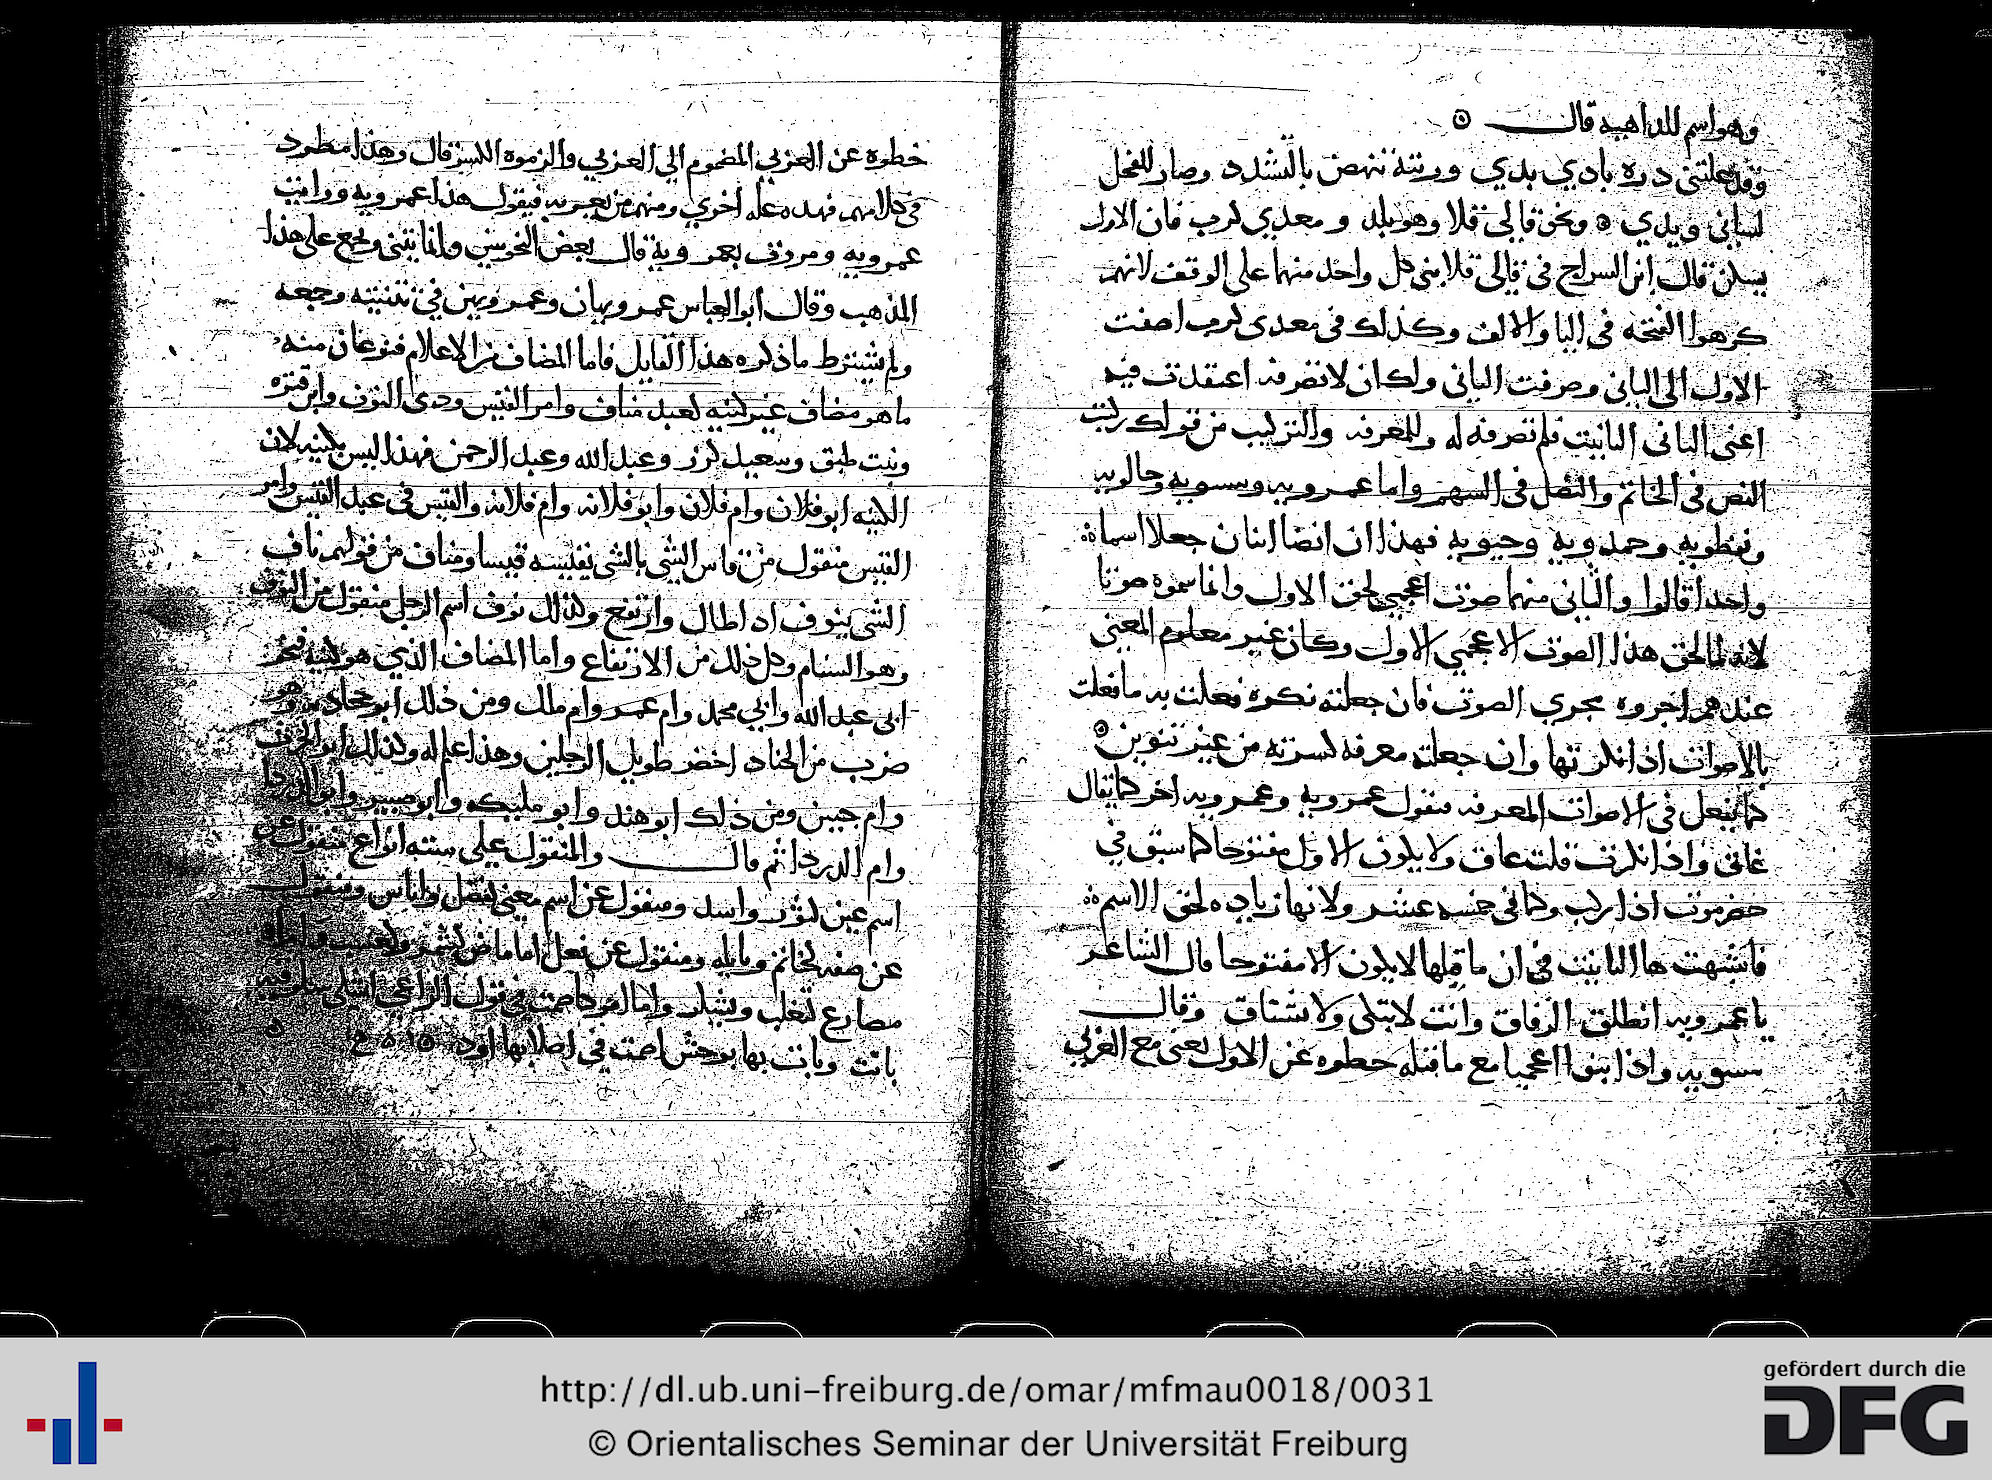 وهو اسم للداهيه قال
وقد علتنى دره بادي بدي ورثية تنهض بالتشدد وصار للفحل
لساني ويدي ونحن قالى قلا وهو بلد ومعدي كرب فان الاول
يسكن قال ابن السراج في قالى قلا بنى كل واحد منهما على الوقف لانهم
كرهوا الفتحه في اليا والالف وكذلك في معدى كرب اضفت
الاول الى الثانى وصرفت الثانى ولك ان لا تصرفه اعتقدت فيه
اعنى الثانى التانيث فلم تصرفه له وللمعرفه والتركيب من قولك ركبت
الفص في الخاتم والنصل في السهم واما عمرويه وسيبويه وخالويه
ونفطويه وحمدويه وحيويه فهذان ايضا اثنان جعلا اسما
واحدا قالوا والثانى منهما صوت اعجمي لحق الاول وانما سموه صوتا
لانه لما لحق هذا الصوت الاعجمي الاول وكان غير معلوم المعنى
عندهم اجروه مجري الصوت فان جعلته نكره فعلت به ما فعلت
بالاصوات اذا نكرتها وان جعلته معرفه كسرته من غير تنوين
كما تفعل في الاصوات المعرفه فتقول عمرويه وعمرويه اخر كما يقال
غاق واذا نكرت قلت غاق ولا يكون الاول مفتوحا كما سبق في
حضرموت اذا ركب وكما في خمسه عشر ولانها زياده لحق الاسم
فاشبهت ها التانيث في ان ما قبلها لا يكون الا مفتوحا قال الشاعر
يا عمرويه انطلق الرفاق وانت لا تبكى ولا تشتاق وقال
سيبويه واذا بنوا اعجميا مع ما قبله حطوه عن الاول يعنى مع العربي
خطوه عن العربي المضموم الي العربي والزموه الكسر قال وهذا مطرد
في كلامهم فهذه عله اخري ومنهم من يعربه فيقول هذا عمرويه ورايت
عمرويه ومررت بعمرويه قال بعض النحويين وانما يثنى ويجمع على هذا
المذهب وقال ابو العباس عمرويهان وعمرويهين في تثنيته وجمعه
ولم يشترط ما ذكره هذا القايل فاما المضاف من الاعلام فنوعان منه
ما هو مضاف غير كنيه كعبد مناف وامر القيس وذى النون وابن قتره
وبنت طبق وسعيد كرز وعبد الله وعبد الرحمن فهذا ليس بكنيه لان
الكنيه ابو فلان وام فلان وابو فلانه وام فلانه والقيس في عبد القيس وامر
القيس منقول من قاس الشى بالشى يقيسه قيسا ومناف من قولهم ناف
الشى ينوف اذا طال وارتفع وكذلك نوف اسم الرجل منقول من النوف
وهو السنام وكل ذلك من الارتفاع واما المضاف الذي هو كنيه فنحو
ابى عبد الله وابي محمد وام عمرو وام ملك ومن ذلك ابو جخادب وهو
ضرب من الجناد اخضر طويل الرجلين وهذا علم له وكذلك ابو الحرث
وام حبين ومن ذلك ابو هند وابو مليكه وابو حبيب وابو الدردا
وام الدردا ثم قال والمنقول على سته انواع منقول عن
اسم عين كثور واسد ومنقول عن اسم معنى كفضل واياس ومنقول
عن صفه كحاتم ونايله ومنقول عن فعل اما ماض كشمر وكعسب واما
مضارع كتغلب ويشكر واما امر كاصمت في قول الراعي اشلى سلوقيه
باتت وبات بها بوحش اصمت في اصلابها اود
http://dl.ub.uni-freiburg.de/omar/mfmau0018/0031
© Orientalisches Seminar der Universität Freiburg
gefördert durch die
DFG